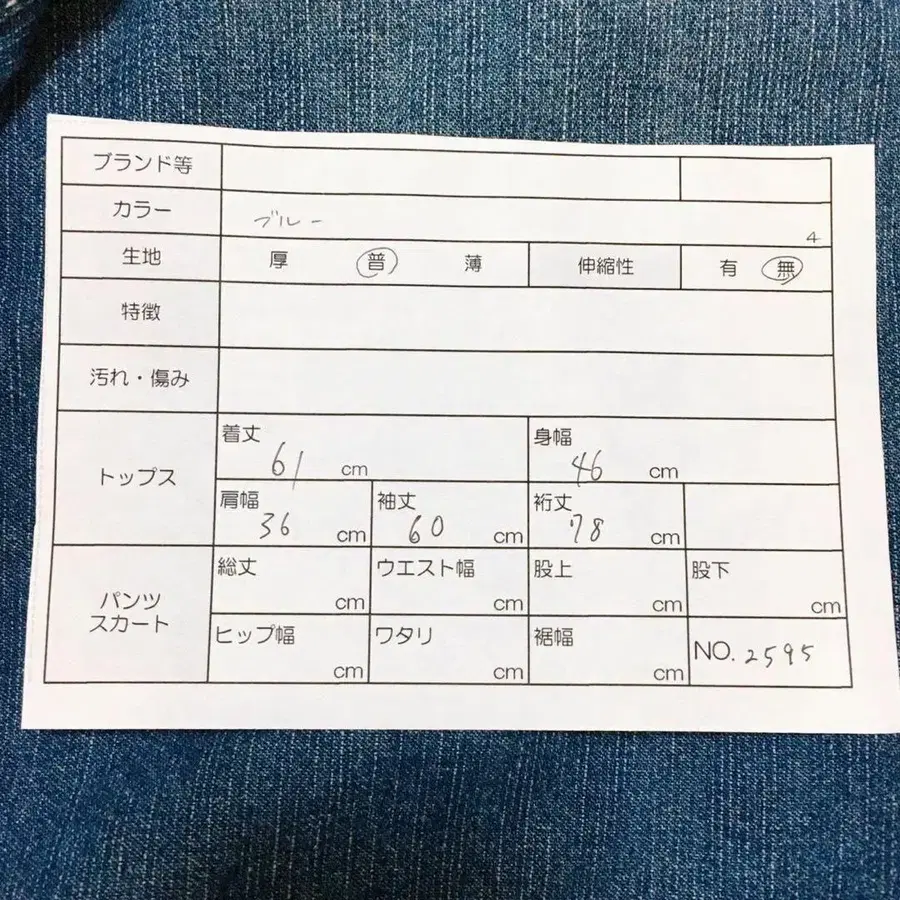 ブランド等
カラー ブルー 4
生地 厚 普 薄 伸縮性 有 無
特徴
汚れ・傷み
トップス
着丈 61 cm 身幅 46 cm
肩幅 36 cm 袖丈 60 cm 裄丈 78 cm
パンツ
スカート
総丈 cm ウエスト幅 cm 股上 cm 股下 cm
ヒップ幅 cm ワタリ cm 裾幅 cm NO. 2595